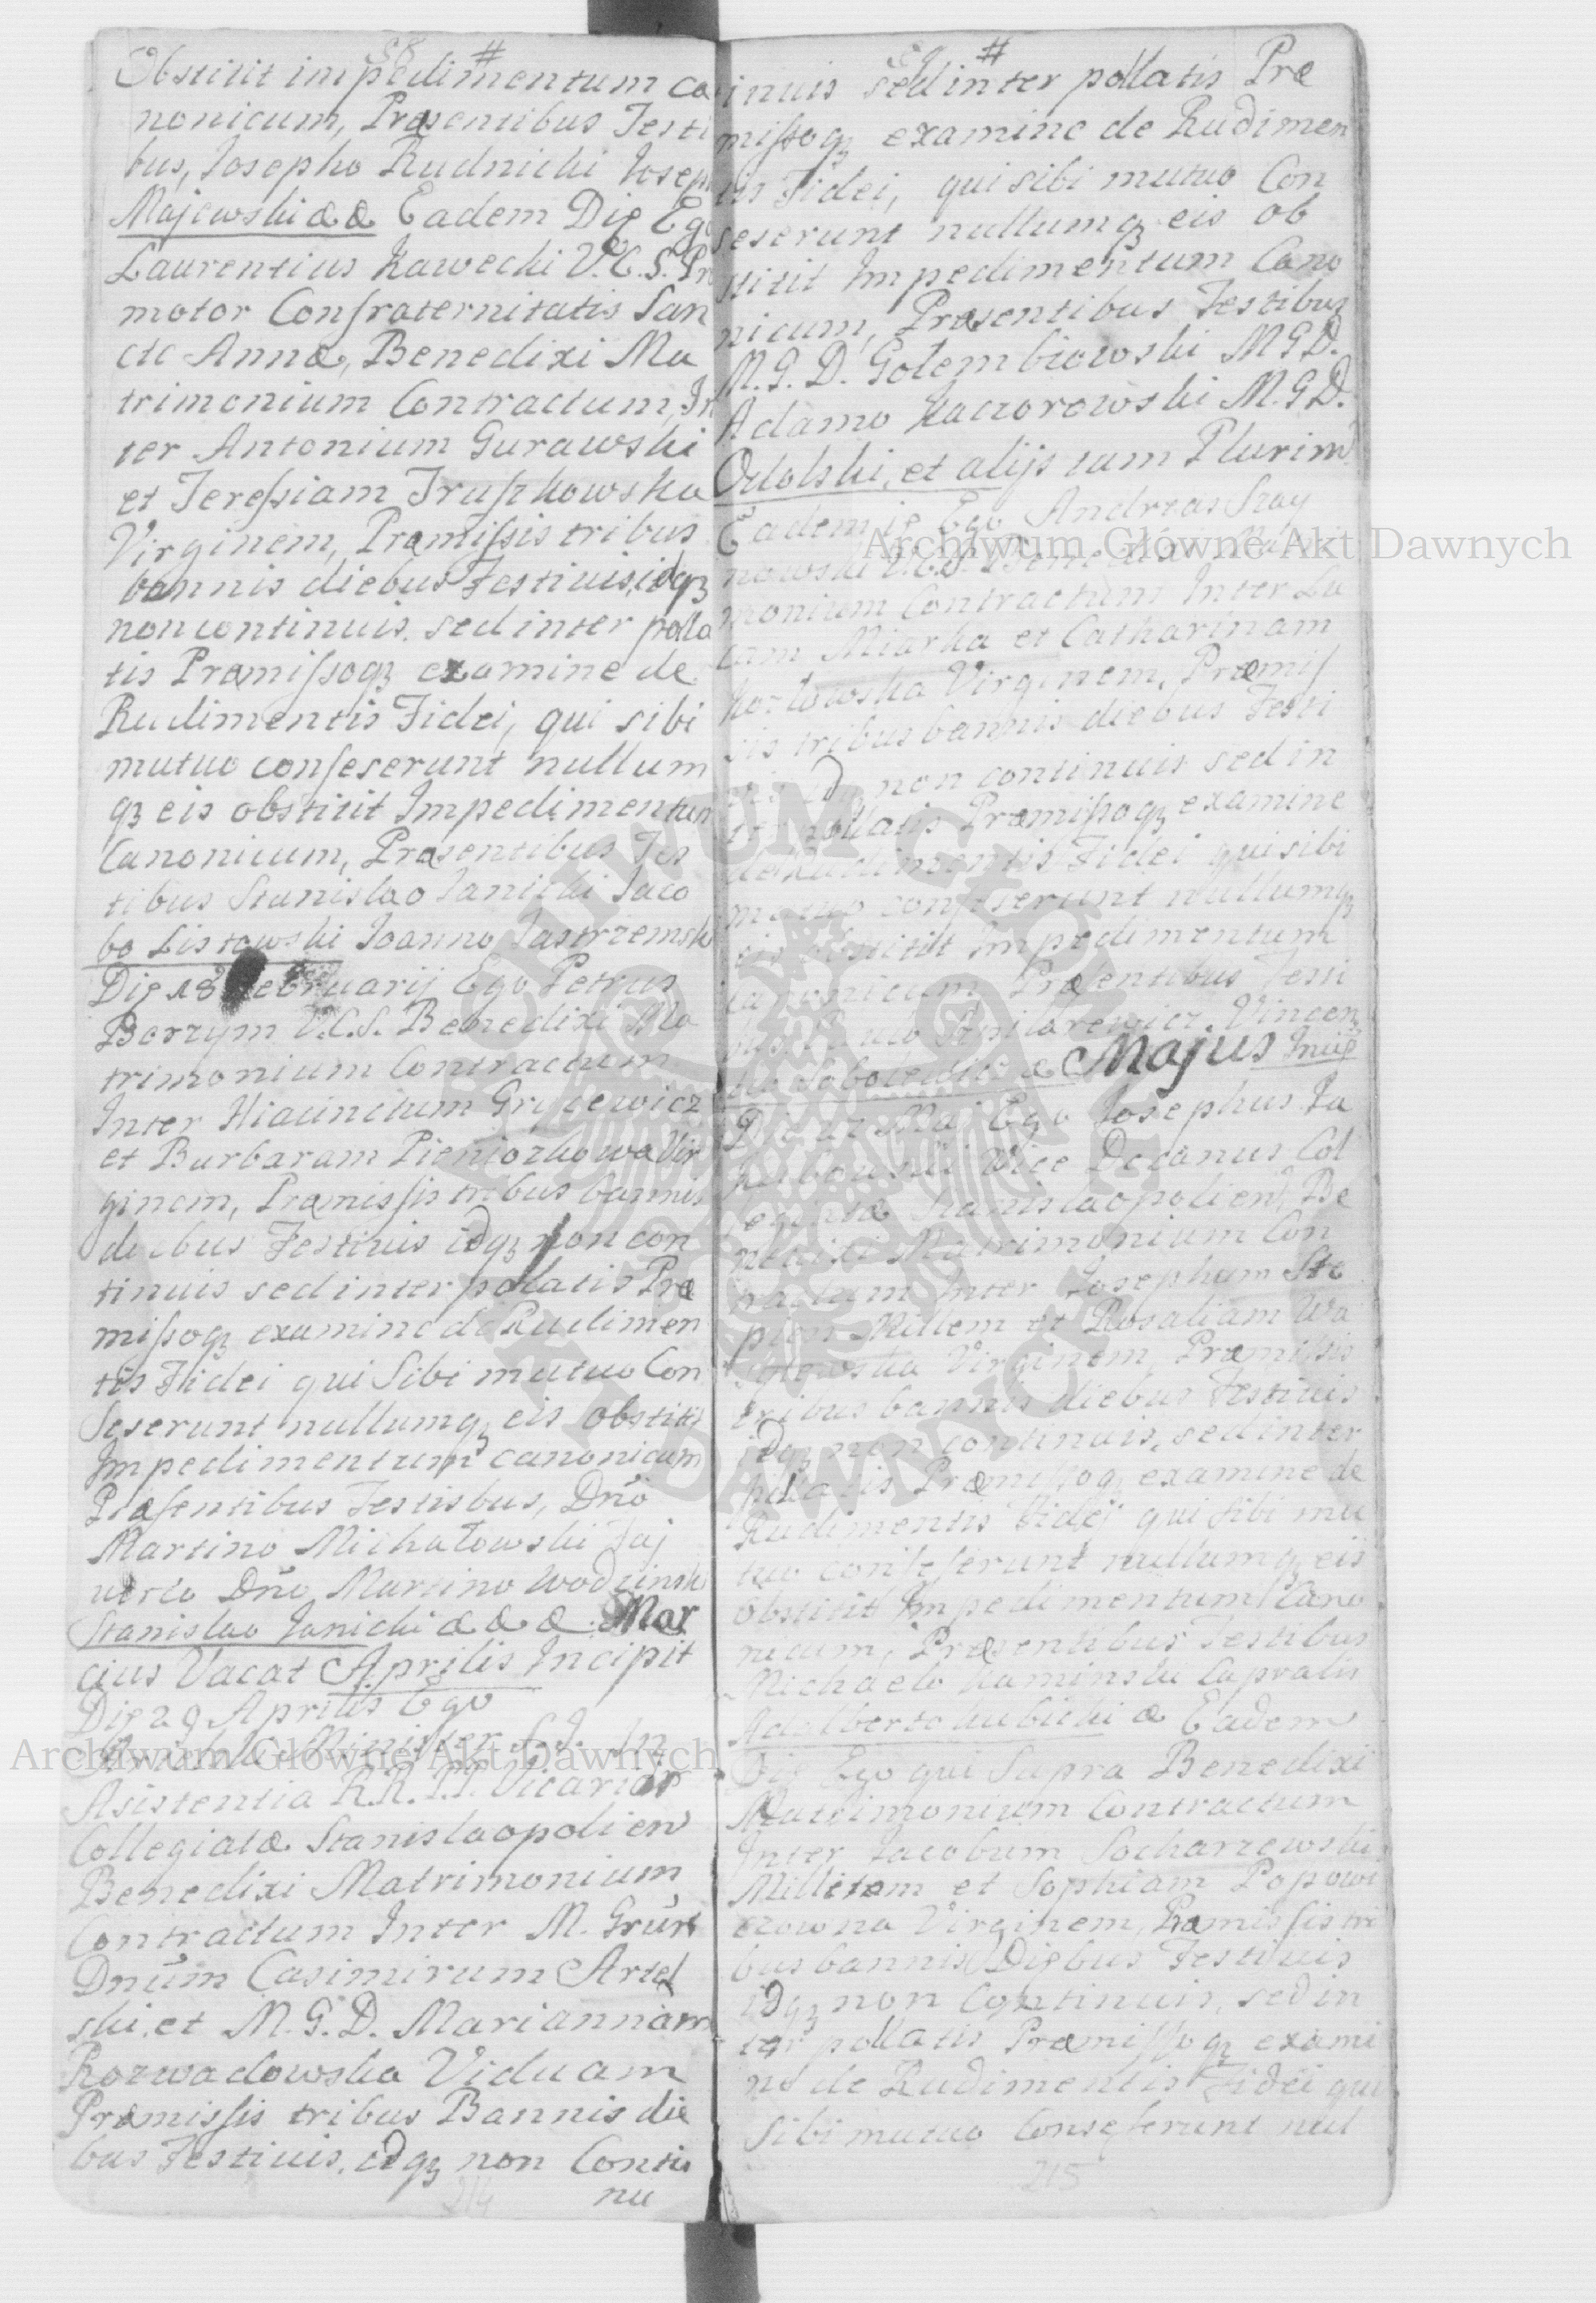 58 #
Obstitit impedimentum ca
nonicum, Præsentibus Testi
bus, Josepho Rudnicki Joseph
Majewski & & Eadem Die Ego
Laurentius Kawecki V.C.S. Pro
motor Confraternitatis San
ctæ Annæ, Benedixi Ma
trimonium Contractum, In
ter Antonium Gurawski
et Teressiam Truszkowska
Virginem, Præmissis tribus
bannis diebus Festiuis, idqз
non continuis, sed inter polla
tis Præmissoqз examine de
Rudimentis Fidei, qui sibi
mutuo conseserunt nullum
qз eis obstitit Impedimentum
Canonicum, Præsentibus Tes
tibus Stanislao Janicki Jaco
bo Listowski Joanno Jastrzemsk
Die 18 Februarij Ego Petrus
Borzym V.C.S. Benedixi Ma
trimonium Contractum
Inter Hiacinctum Grycewicz
et Barbaram Pieniozkowa Vir
ginem, Præmissis tribus bannis
diebus Festiuis idqз non con
tinuis sed inter pollatis Præ
missoqз examine de Rudimen
tis Fidei qui Sibi mutuo Con
seserunt nullumqз eis obstitit
Impedimentum canonicum
Præsentibus Testisbus, Dno
Martino Michałowski
Dno Martino Wodzinsk
Stanislao Janicki & & & Mar
cius Vacat Aprilis Incipit
Die 29 Aprilis Ego
Minister S.J. In
Asistentia R.R. P.P. Vicarior
Collegiatæ Stanislaopolien
Benedixi Matrimonium
Contractum Inter M.
Dnum Casimirum Artel
ski, et M. G. D. Mariannam
Rozwadowska Viduam
Præmissis tribus Bannis die
bus Festiuis, idqз non Contin
nu
214
#
inuis sed inter pollatis Præ
missoqз examine de Rudimen
tis Fidei, qui sibi mutuo Con
seserunt nullumqз eis ob
stitit Impedimentum Cano
nicum, Præsentibus Testibus
M. G. D. Gołembiowski M G D.
Adamo Kaczorowski M. G D.
Odolski, et alijs tam Plurim
Eadem ie Ego Andreas Szay
nowski V.C.S. Benedixi Matri
monium Contractum Inter Lu
cam Miarka et Catharinam
Kozłowska Virginem, Præmis
sis tribus bannis diebus Festi
uis idqз non continuis sed in
ter pollatis Præmissoqз examine
de Rudimentis Fidei qui sibi
mutuo conseserunt nullumqз
eis obstitit Impedimentum
canonicum Præsentibus Testi
bus Vincen
Majus Incip
Maj Ego Josephus Ja
kubowski Vice Decanus Col
legiatæ Stanislaopolien, Be
nedixi Matrimonium Con
tractum Inter Josephum Ste
pien Millem et Rosaliam Wa
Virginem, Præmissis
tribus bannis diebus Festiuis
idqз non continuis, sed inter
pollatis Præmissoqз examine de
Rudimentis Fidej qui sibi mu
tuo conseserunt nullumqз eis
obstitit Impedimentum Cano
nicum, Præsentibus Testibus
Michaelo Kaminski Capralis
Adalberto Kubicki & Eadem
Die Ego qui Supra Benedixi
Matrimonium Contractum
Inter Jacobum Socharzewski
Militem et Sophiam Popowi
czowna Virginem, Præmissis tri
bus bannis Diebus Festiuis
idqз non Continuis, sed in
ter pollatis Præmissoqз exami
ne de Rudimentis Fidei qui
Sibi mutuo Conseserunt nul
215
Archiwum Główne Akt Dawnych
Archiwum Główne Akt Dawnych
ARCHIWUM GŁÓWNE
AKT DAWNYCH